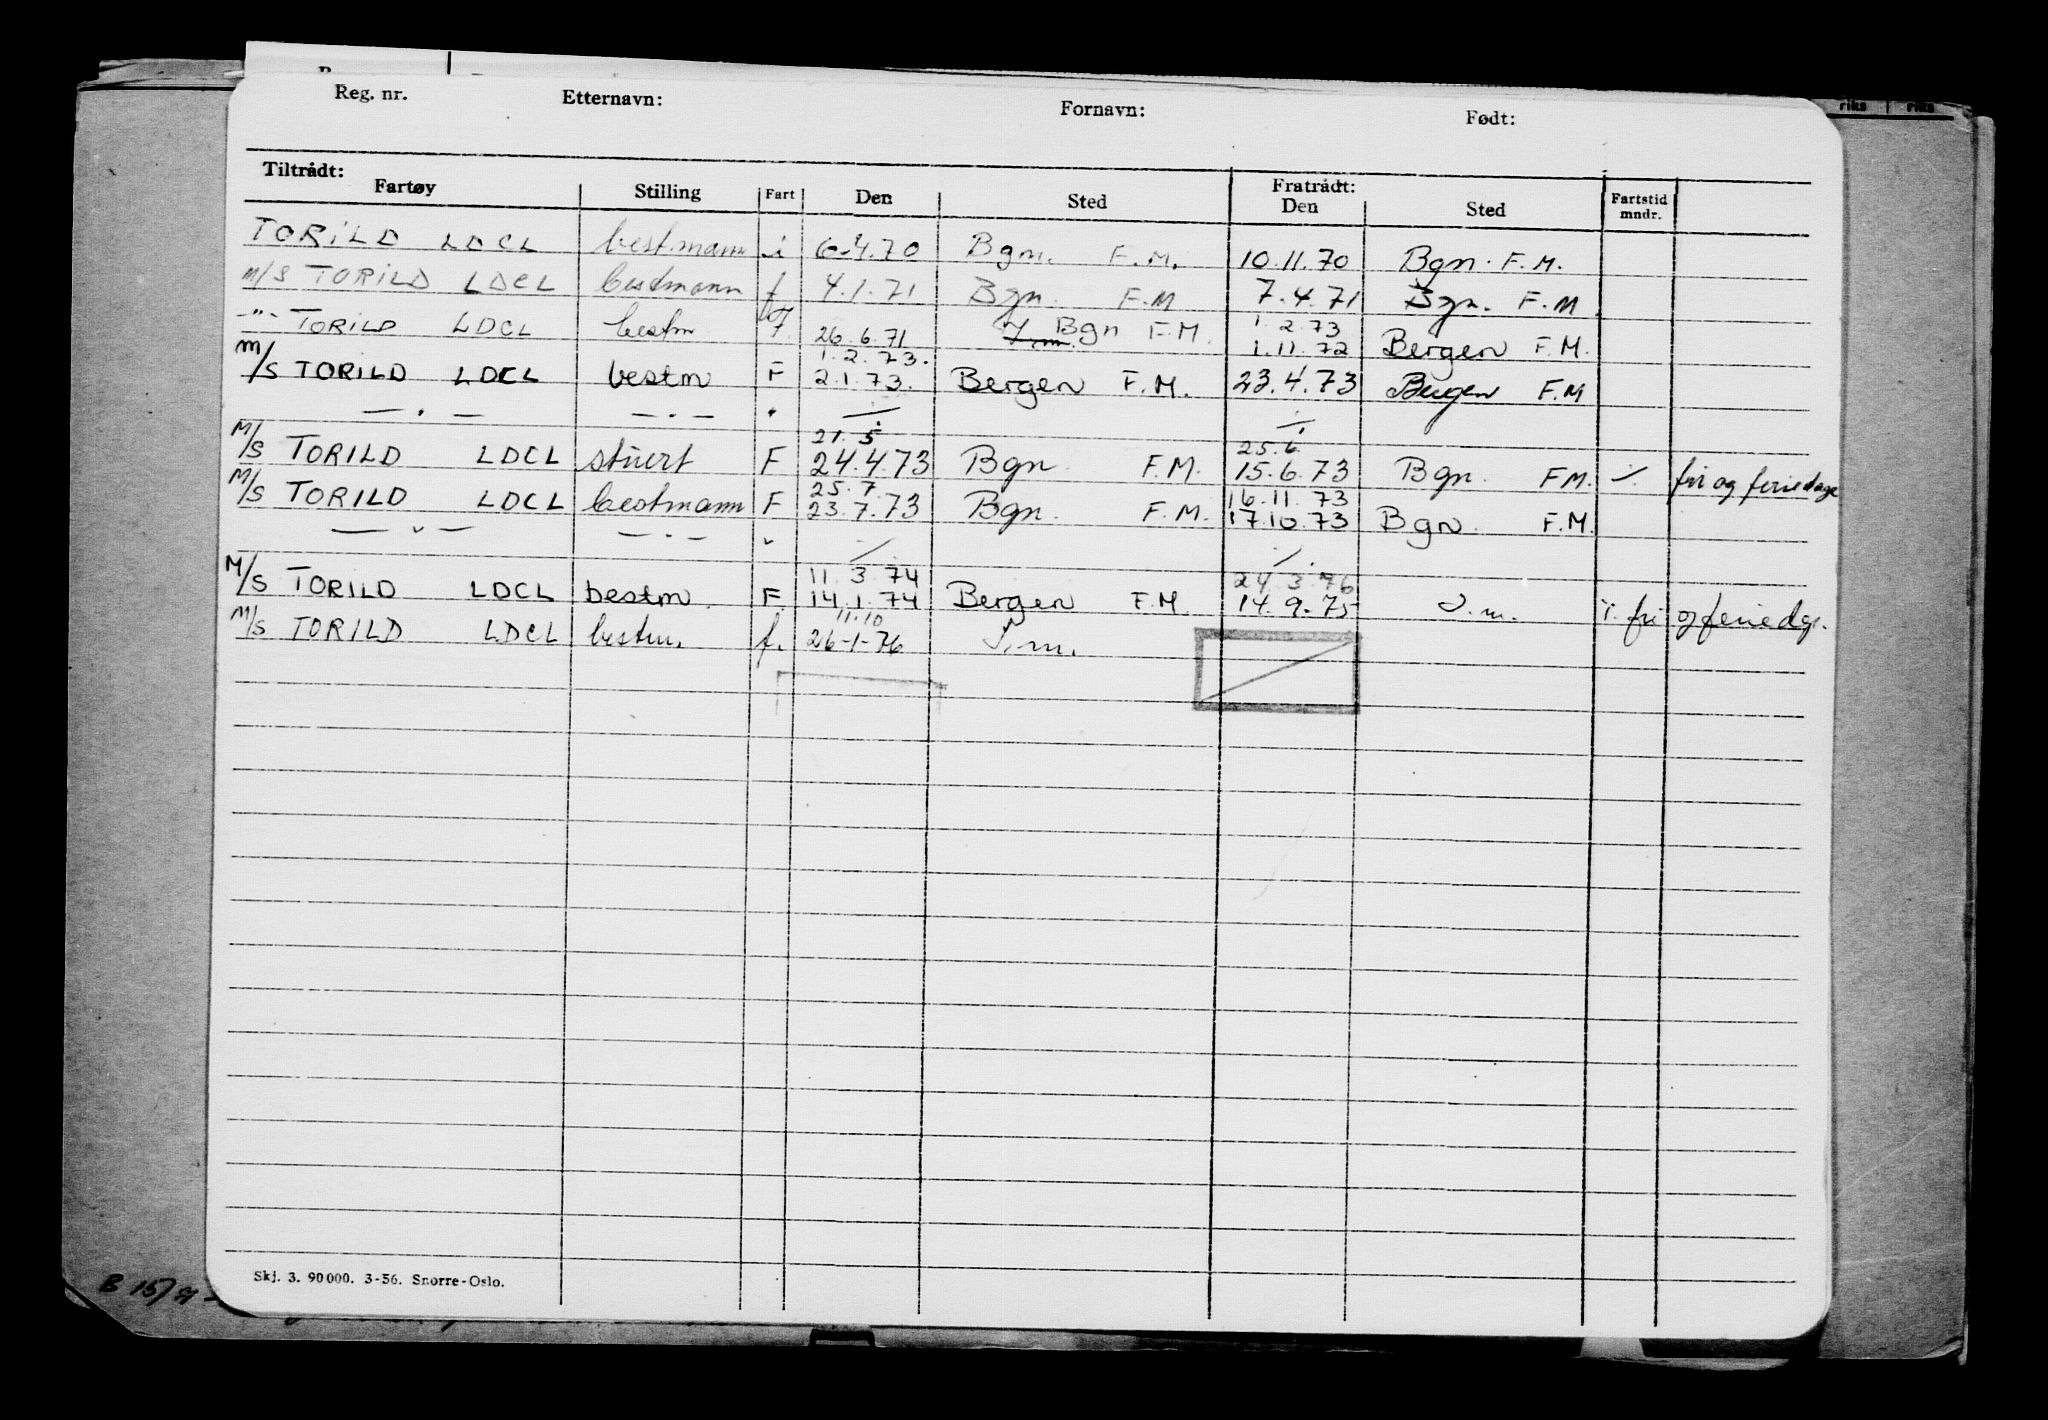 Reg. nr. Etternavn: Fornavn: Født:
Tiltrådt: Fratrådt:
Fartøy Stilling Fart Den Sted Den Sted Fartstid mndr.
TORILD LDCL bestmann i 6.4.70 Bgn. F.M. 10.11.70 Bgn. F.M.
M/S TORILD LDCL bestmann f 4.1.71 Bgn. F.M 7.4.71 Bgn. F.M
1.2.73
-"- TORILD LDCL bestm f. 26.6.71 Bgn F.M. 1.11.72 Bergen F.M.
1.2.73.
M/S TORILD LDCL bestm F 2.1.73. Bergen F.M. 23.4.73 Bergen F.M
— . — — . — "
21.5 25.6
M/S TORILD LDCL stuert F 24.4.73 Bgn. F.M. 15.6.73 Bgn. F.M. ./. fri og feriedage
25.7 16.11.73
M/S TORILD LDCL bestmann F 23.7.73 Bgn. F.M. 17.10.73 Bgn. F.M.
— " — — . — "
11.3.74 24.3.76
M/S TORILD LDCL bestm. F. 14.1.74 Bergen F.M. 14.9.75 S.m. ./. fri og feriedgr.
11.10
M/S TORILD LDCL bestm. f. 26-1-76 S.m.
Skj. 3. 90000. 3-56. Snorre-Oslo.
riks riks